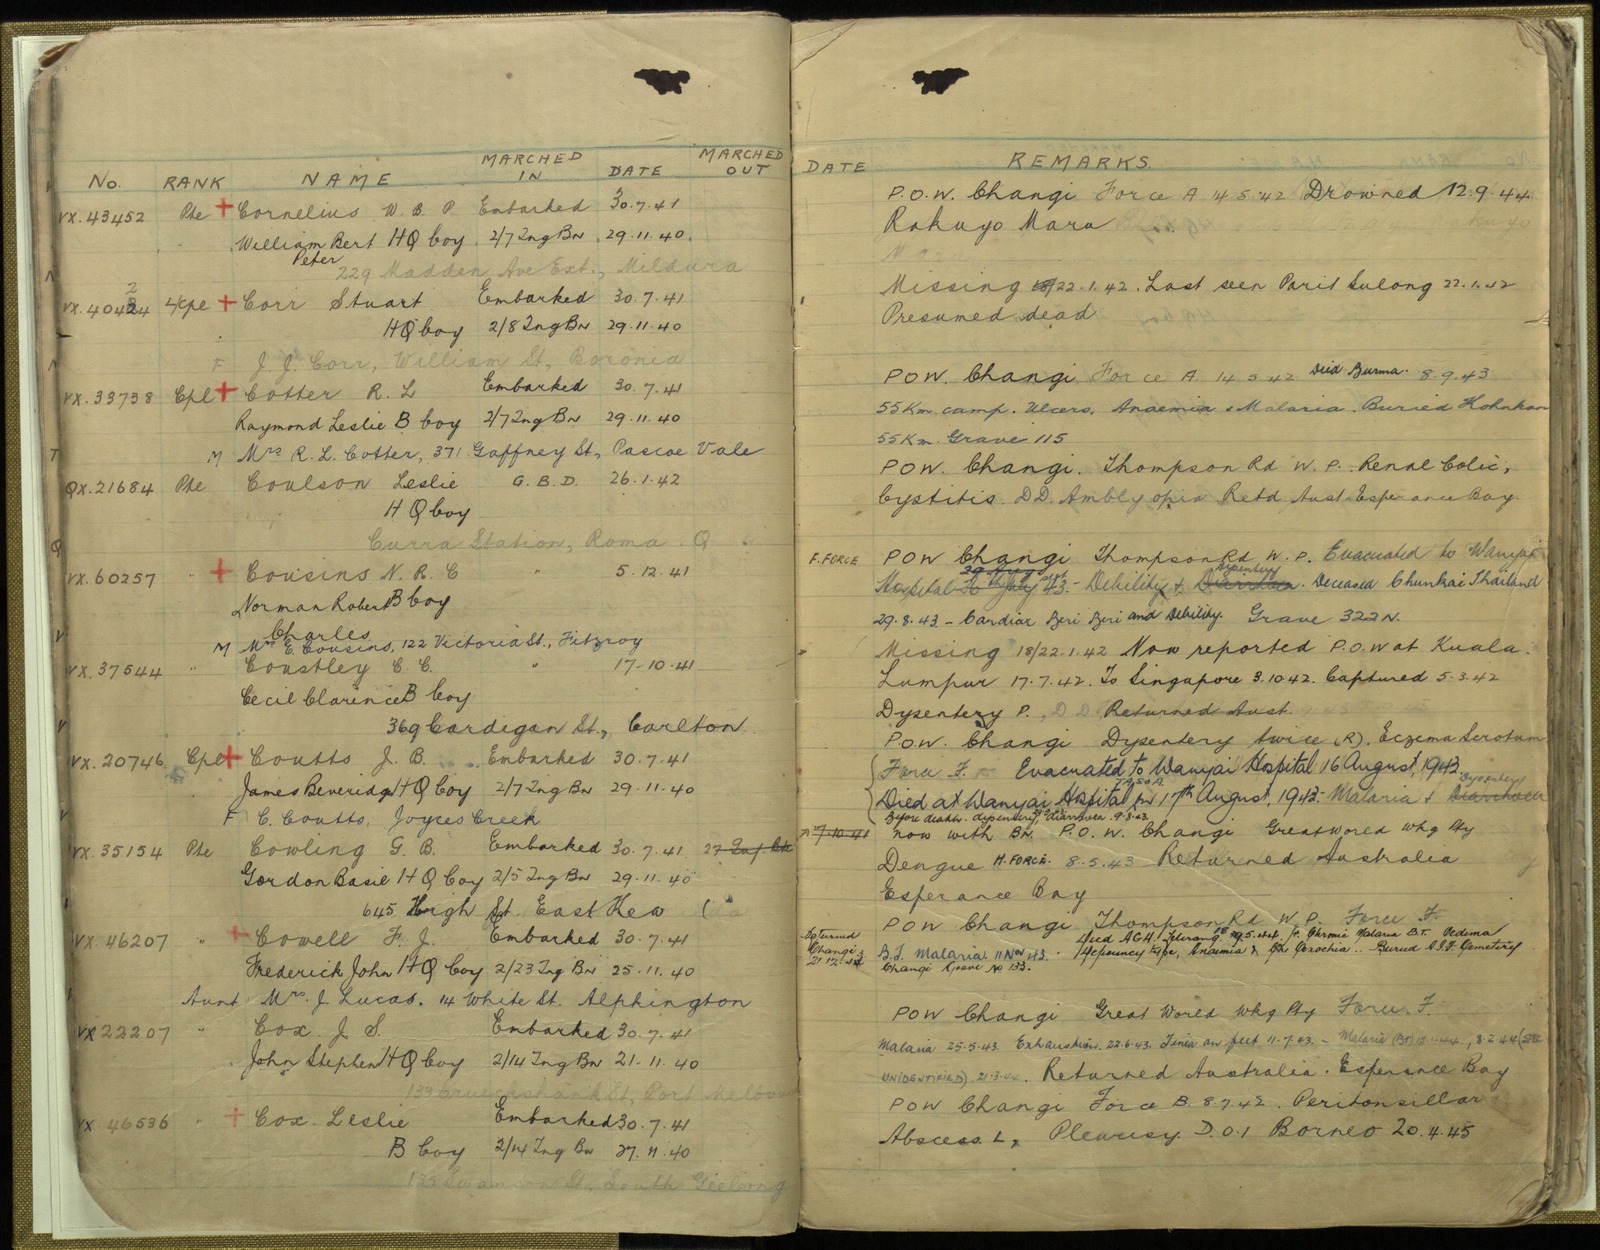 No. RANK NAME MARCHED IN DATE MARCHED OUT
VX.43452 Pte + Cornelius W. B. P. Embarked 30.7.41
William Bert HQ Coy 2/7 Tng Bn 29.11.40.
Peter
229 Madden Ave Ext., Mildura
VX.40424 L/Cpl + Corr Stuart Embarked 30.7.41
HQ Coy 2/8 Tng Bn 29.11.40
F J. J. Corr, William St, Boronia
VX.33738 Cpl + Cotter R. L Embarked 30.7.41
Raymond Leslie B Coy 2/7 Tng Bn 29.11.40
M Mrs R. L. Cotter, 371 Gaffney St, Pascoe Vale
QX.21684 Pte Coulson Leslie G.B.D. 26.1.42
HQ Coy
Curra Station, Roma. Q
VX.60257 " + Cousins N. R. C " 5.12.41
Norman Robert B Coy
Charles
M Mrs E. Cousins, 122 Victoria St., Fitzroy
VX.37544 " Coustley C. C. " 17-10-41
Cecil Clarence B Coy
369 Cardigan St., Carlton
VX.20746 Cpl + Coutts J. B. Embarked 30.7.41
James Beveridge HQ Coy 2/7 Tng Bn 29.11.40
F C. Coutts, Joyces Creek
VX.35154 Pte Cowling G. B. Embarked 30.7.41
Gordon Basil HQ Coy 2/5 Tng Bn 29.11.40
645 High St. East Kew
VX 46207 " + Cowell F. J. Embarked 30.7.41
Frederick John HQ Coy 2/23 Tng Bn 25.11.40
Aunt Mrs. J. Lucas. 14 White St. Alphington
VX 22207 " Cox J. S. Embarked 30.7.41
John Stephen HQ Coy 2/14 Tng Bn 21.11.40
133 Cruickshank St, Port Melbourne
VX 46536 " + Cox. Leslie Embarked 30.7.41
B Coy 2/14 Tng Bn 27.11.40
St, South Geelong
DATE REMARKS.
P.O.W. Changi Force A 14.5.42 Drowned 12.9.44.
Rokuyo Maru
Missing 22.1.42. Last seen Parit Sulong 22.1.42
Presumed dead
POW. Changi Force A 14.5.42 Died Burma. 8.9.43
55 Km camp. Ulcers, Anaemia & Malaria. Buried Kohnkan
55 Km. Grave 115
POW. Changi. Thompson Rd W.P. Renal Colic,
Cystitis. D.D. Amblyopia Retd Aust Esperance Bay.
F. FORCE POW Changi Thompson Rd W.P. Evacuated to Wanyai
Hospital 43. - Debility & Dysentery Diarrhoea. Deceased Chunkai Thailand
29.8.43 - Cardiac Beri Beri and Debility. Grave 322 N.
Missing 18/22.1.42 Now reported P.O.W at Kuala
Lumpur 17.7.42. To Singapore 3.10.42. Captured 5.3.42
Dysentery P., D D Returned Aust.
P.O.W. Changi Dysentery twice (R). Eczema Scrotum
Force F. Evacuated to Wanyai Hospital 16 August, 1943
Died at Wanyai Hospital on 17th August, 1943 - Malaria & Dysentery Diarrhoea
Before death. dysentery, Diarrhoea. 9.8.43.
7.10.41 now with Bn. P.O.W. Changi Great World Wkg Pty
Dengue H. FORCE. 8.5.43 Returned Australia
Esperance Bay
POW Changi Thompson Rd W.P. Force F.
Returned Changi 21.12.43 B.T. Malaria 11 Nov 43. - Died A.G.H. 9.5.44, Chronic Malaria B.T. Oedema
Deficiency type, Anaemia & Buried A.I.F. Cemetery
Changi Grave No 133.
POW Changi Great World Wkg Pty Force F.
Malaria 25.5.43. Exhaustion. 22.6.43. Tinea on feet 11.7.43. - Malaria (BT) 8.2.44
UNIDENTIFIED) Returned Australia. Esperance Bay
POW Changi Force B. 8.7.42. Peritonsillar
Abscess L, Pleurisy. D.O.I Borneo 20.4.45